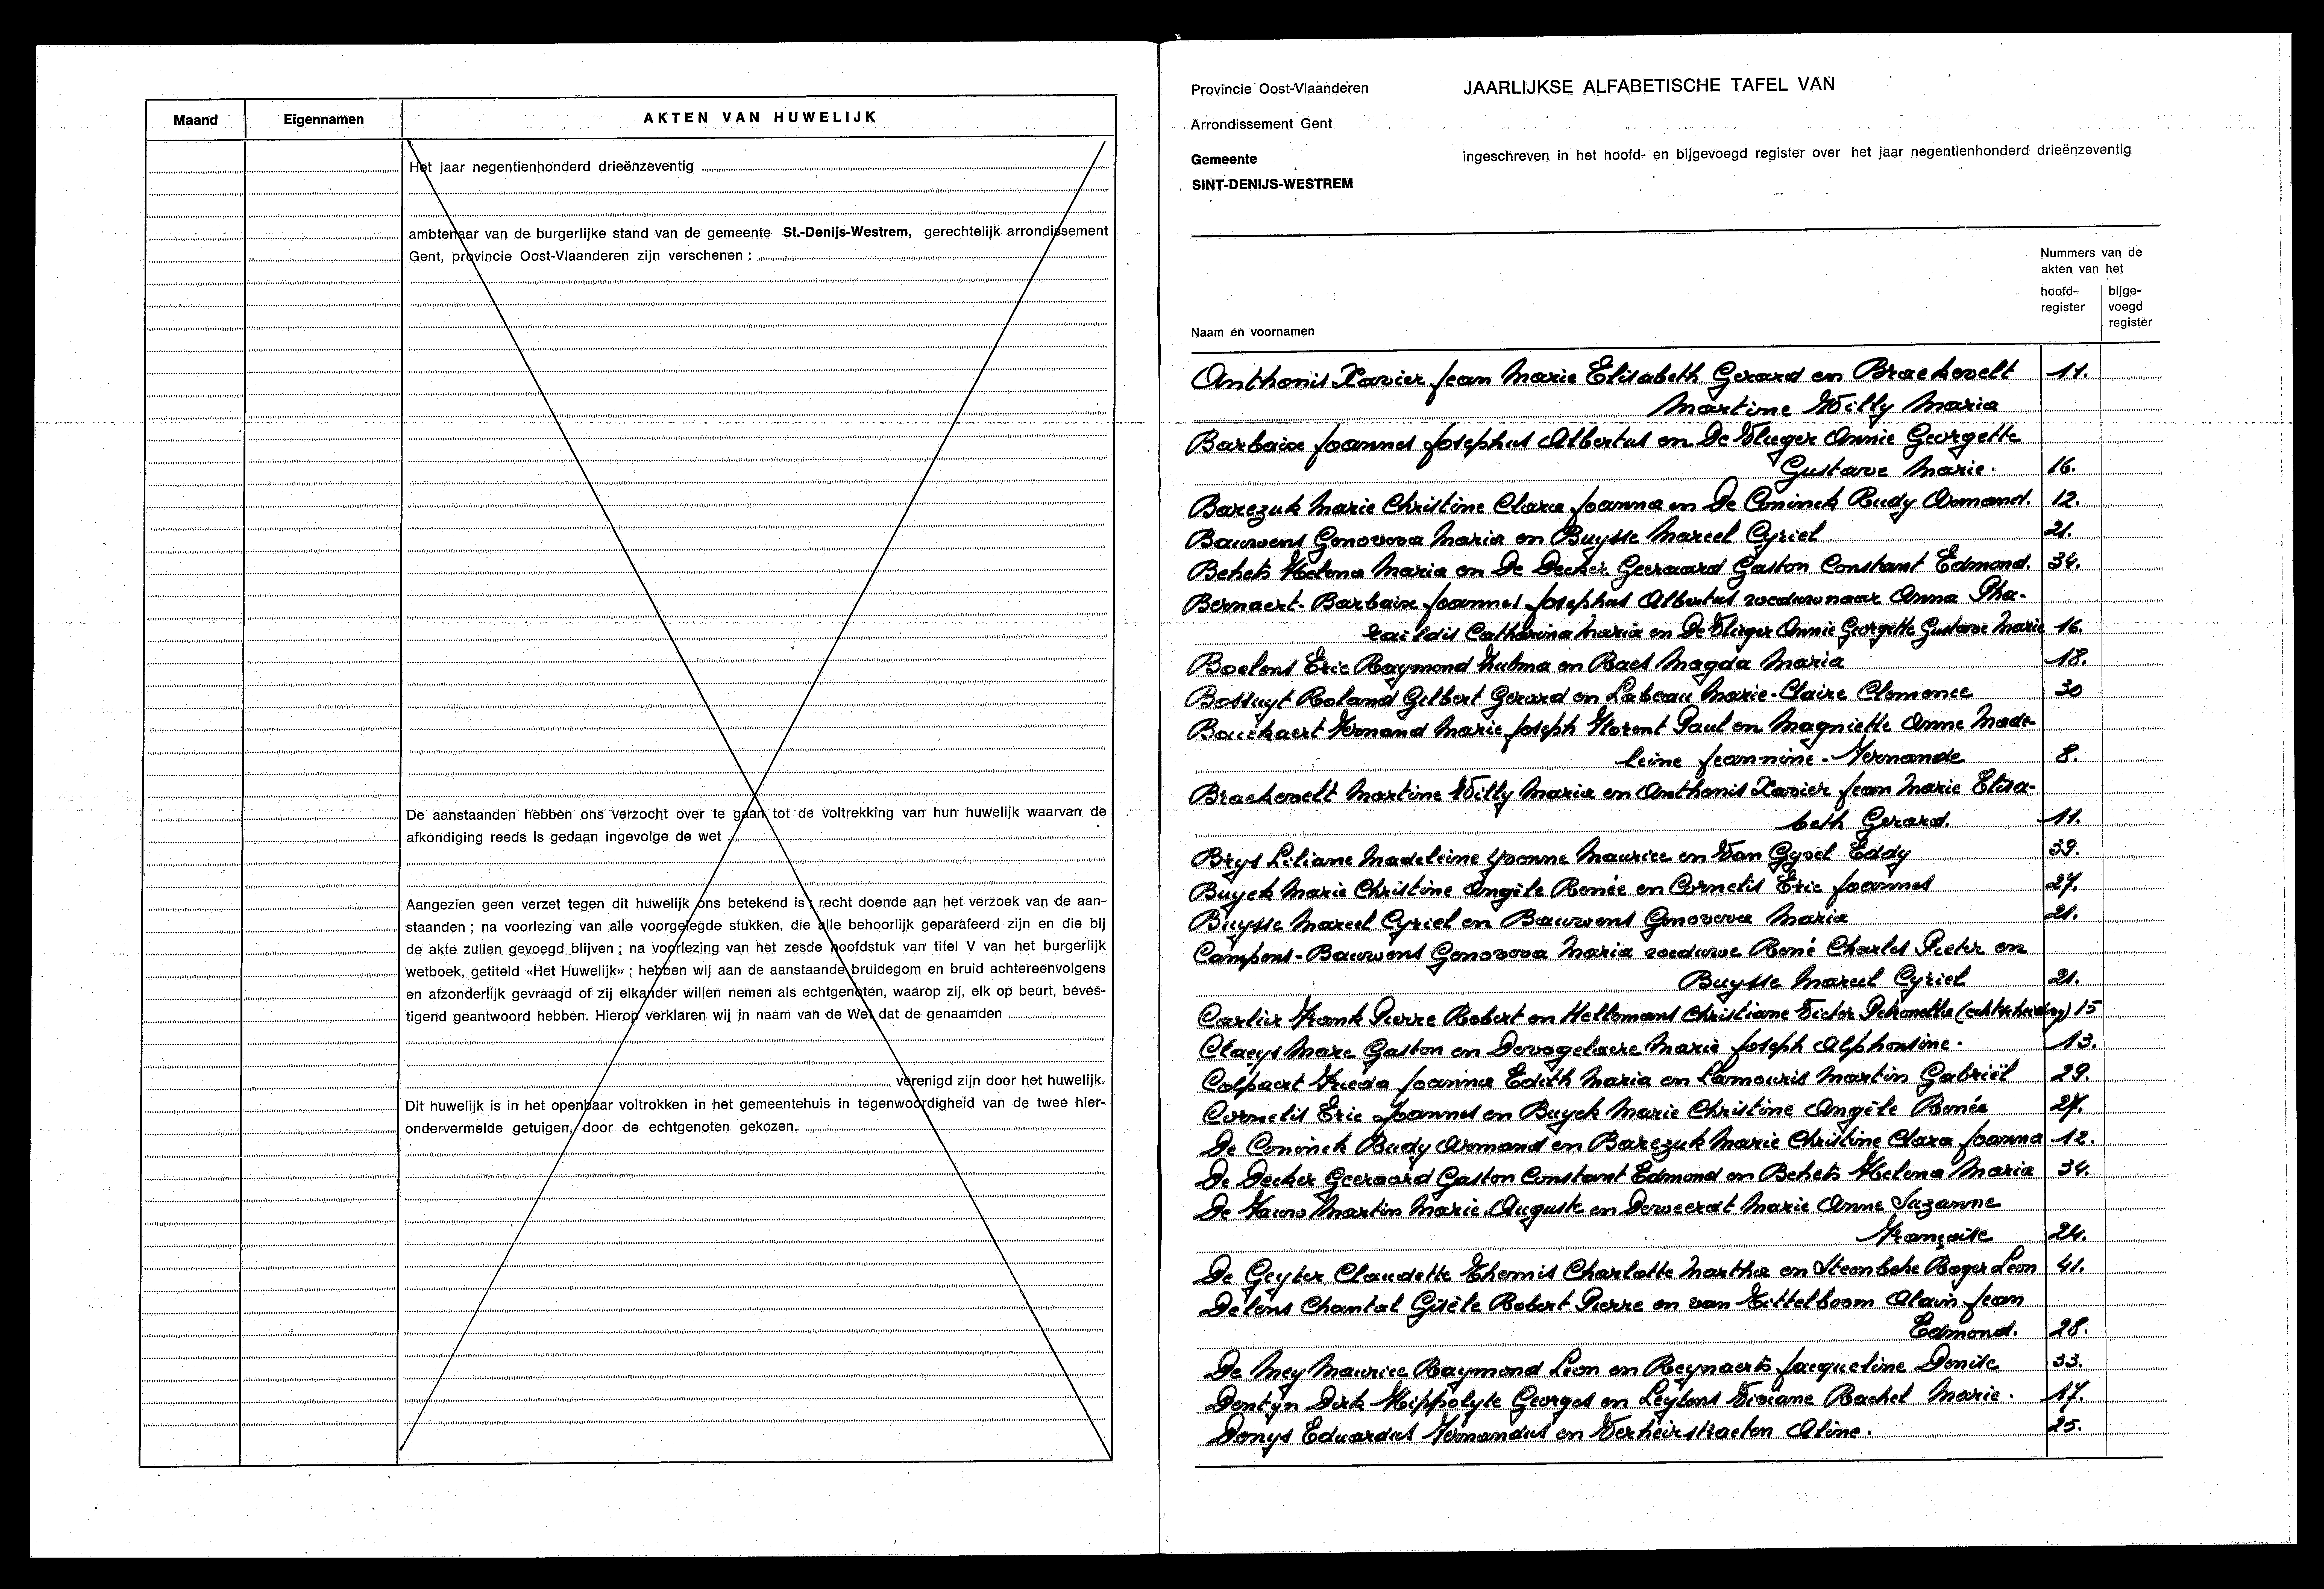 Maand Eigennamen AKTEN VAN HUWELIJK
Het jaar negentienhonderd drieënzeventig
ambtenaar van de burgerlijke stand van de gemeente St.-Denijs-Westrem, gerechtelijk arrondissement
Gent, provincie Oost-Vlaanderen zijn verschenen :
De aanstaanden hebben ons verzocht over te gaan tot de voltrekking van hun huwelijk waarvan de
afkondiging reeds is gedaan ingevolge de wet
Aangezien geen verzet tegen dit huwelijk ons betekend is ; recht doende aan het verzoek van de aan-
staanden ; na voorlezing van alle voorgelegde stukken, die alle behoorlijk geparafeerd zijn en die bij
de akte zullen gevoegd blijven ; na voorlezing van het zesde hoofdstuk van titel V van het burgerlijk
wetboek, getiteld «Het Huwelijk» ; hebben wij aan de aanstaande bruidegom en bruid achtereenvolgens
en afzonderlijk gevraagd of zij elkander willen nemen als echtgenoten, waarop zij, elk op beurt, beves-
tigend geantwoord hebben. Hierop verklaren wij in naam van de Wet dat de genaamden
verenigd zijn door het huwelijk.
Dit huwelijk is in het openbaar voltrokken in het gemeentehuis in tegenwoordigheid van de twee hier-
ondervermelde getuigen, door de echtgenoten gekozen.
Provincie Oost-Vlaanderen JAARLIJKSE ALFABETISCHE TAFEL VAN
Arrondissement Gent
Gemeente ingeschreven in het hoofd- en bijgevoegd register over het jaar negentienhonderd drieënzeventig
SINT-DENIJS-WESTREM
Nummers van de
akten van het
hoofd- bijge-
register voegd
register
Naam en voornamen
Anthonis Xavier Jean Marie Elisabeth Gerard en Braekevelt 11.
Martine Willy Maria
Barbaix Joannes Josephus Albertus en De Vlieger Annie Georgette
Gustave Marie. 16.
Barezuk Marie Christine Clara Joanna en De Coninck Rudy Armand. 12.
Bauwens Genoveva Maria en Buysse Marcel Cyriel 21.
Behets Helena Maria en De Decker Geeraard Gaston Constant Edmond. 34.
Bernaert-Barbaix Joannes Josephus Albertus weduwnaar Anna Pha-
raïldis Catharina Maria en De Vlieger Annie Georgette Gustave Marie 16.
Boelens Eric Raymond Zulma en Raes Magda Maria 18.
Bossuyt Roland Gilbert Gerard en Labeau Marie-Claire Clemence 30
Bouckaert Fernand Marie Joseph Florent Paul en Magniette Anne Made-
leine Jeannine-Fernande 8.
Braekevelt Martine Willy Maria en Anthonis Xavier Jean Marie Elisa-
beth Gerard. 11.
Brys Liliane Madeleine Yvonne Maurice en Van Gysel Eddy 39.
Buyck Marie Christine Angèle Renée en Cornelis Eric Joannes 27.
Buysse Marcel Cyriel en Bauwens Genoveva Maria 21.
Campens-Bauwens Genoveva Maria weduwe René Charles Pieter en
Buysse Marcel Cyriel 21.
Carlier Frank Pierre Robert en Hellemans Christiane Victor Petronella (echtscheiding) 15
Claeys Marc Gaston en Devogelaere Marie Joseph Alphonsine. 13.
Colpaert Frieda Joanna Edith Maria en Lamouris Martin Gabriël 29.
Cornelis Eric Joannes en Buyck Marie Christine Angèle Renée 27.
De Coninck Rudy Armand en Barezuk Marie Christine Clara Joanna 12.
De Decker Geeraard Gaston Constant Edmond en Behets Helena Maria 34.
De Fauw Martin Marie Auguste en Derweerdt Marie Anne Suzanne
Françoise 24.
De Geyter Claudette Themis Charlotte Martha en Steenbeke Roger Leon 41.
Delens Chantal Gisèle Robert Pierre en van Tittelboom Alain Jean
Edmond. 28.
De Mey Maurice Raymond Leon en Reynaerts Jacqueline Denise 33.
Dentyn Dirk Hippolyte Georges en Leytens Viviane Rachel Marie. 17.
Denys Eduardus Fernandus en Verheirstraeten Aline. 25.